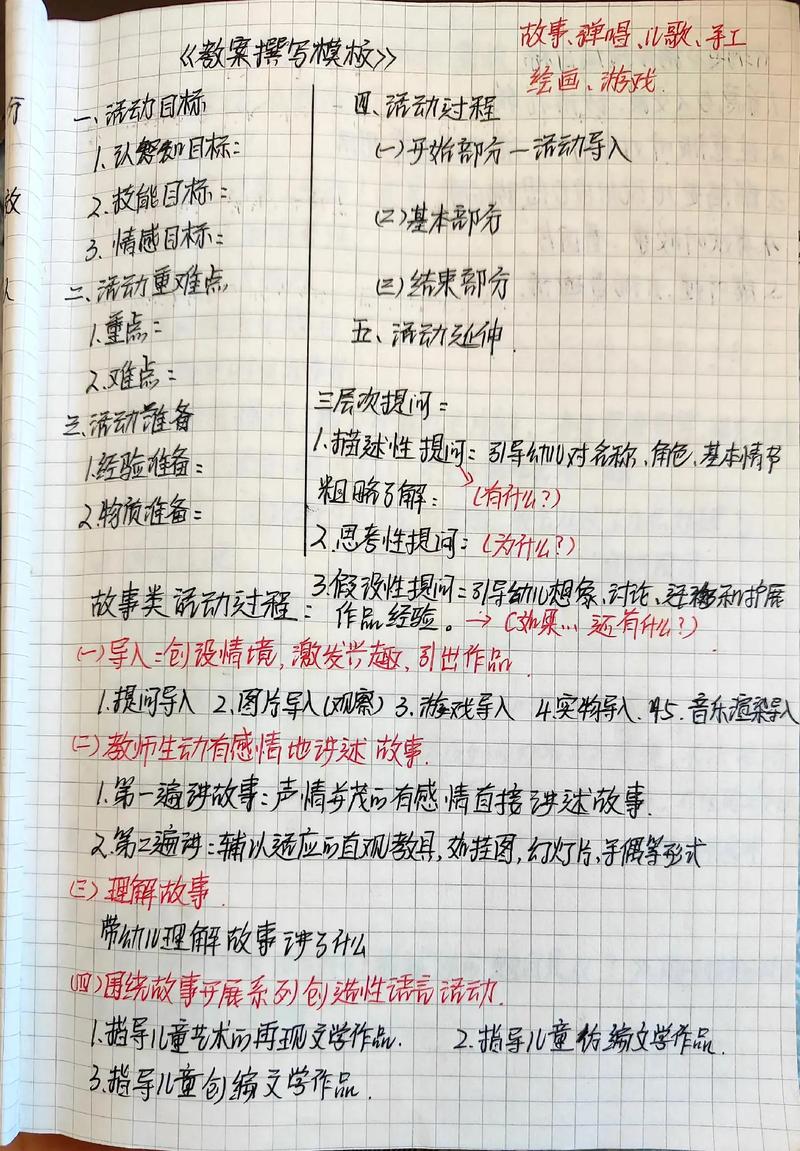 《教案撰写模板》
故事、弹唱、儿歌、手工
绘画、游戏.
一、活动目标
1.认知目标：
2.技能目标：
3.情感目标：
二、活动重难点
1.重点：
2.难点：
三、活动准备
1.经验准备：
2.物质准备：
四、活动过程
(一)开始部分—活动导入
(二)基本部分
(三)结束部分
五、活动延伸.
三层次提问：
1.描述性提问：引导幼儿对名称、角色、基本情节
粗略了解：(有什么?)
2.思考性提问：(为什么?)
3.假设性提问：引导幼儿想象、讨论、迁移和扩展
作品经验。→(如果… 还有什么?)
故事类活动过程：
(一)导入：创设情境,激发兴趣,引出作品
1.提问导入 2.图片导入(观察) 3.游戏导入 4.实物导入. 5.音乐渲染导入
(二)教师生动有感情地讲述故事.
1.第一遍讲故事：声情并茂的有感情直接讲述故事.
2.第二遍讲：辅以适应的直观教具,如挂图,幻灯片,手偶等形式
(三)理解故事.
带幼儿理解故事讲了什么
(四)围绕故事开展系列创造性语言活动.
1.指导儿童艺术的再现文学作品. 2.指导儿童仿编文学作品.
3.指导儿童创编文学作品.
分
放